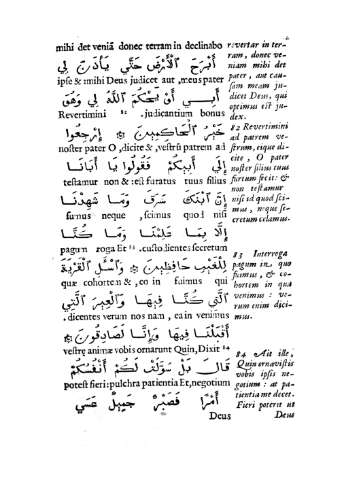 mihi det veniã donec terram in declinabo
أَبْرَحَ ٱلْأَرْضَ حَتَّى يَأْذَنَ لِي
ipse & mihi Deus judicet aut, meus pater
أَبِي أَوْ يَحْكُمَ ٱللَّهُ لِي وَهُوَ
Revertimini 82 .judicantium bonus
خَيْرُ ٱلْحَاكِمِينَ ارْجِعُوا
noster pater O, dicite &, vestrũ patrem ad
إِلَى أَبِيكُمْ فَقُولُوا يَا أَبَانَا
testamur non & : est furatus tuus filius
إِنَّ ٱبْنَكَ سَرَقَ وَمَا شَهِدْنَا
sumus neque , scimus quod nisi
إِلَّا بِمَا عَلِمْنَا وَمَا كُنَّا
pagum roga Et 83 .custodientes secretum
لِلْغَيْبِ حَافِظِينَ وَٱسْئَلِ ٱلْقَرْيَةَ
quæ cohortem & , eo in fuimus qui
ٱلَّتِي كُنَّا فِيهَا وَٱلْعِيرَ ٱلَّتِي
.dicentes verum nos nam , ea in venimus
أَقْبَلْنَا فِيهَا وَإِنَّا لَصَادِقُونَ
vestræ animæ vobis ornarunt Quin, Dixit 84
قَالَ بَلْ سَوَّلَتْ لَكُمْ أَنْفُسُكُمْ
potest fieri: pulchra patientia Et, negotium
أَمْرًا فَصَبْرٌ جَمِيلٌ عَسَى
Deus
revertar in ter-
ram, donec ve-
niam mihi det
pater, aut cau-
sam meam ju-
dicet Deus, qui
optimus est ju-
dex.
82 Revertimini
ad patrem ve-
strum, eique di-
cite, O pater
noster filius tuus
furtum fecit: &
non testamur
nisi id quod sci-
mus, neque se-
cretum celamus.
83 Interroga
pagum in quo
fuimus, & co-
hortem in qua
venimus : ve-
rum enim dici-
mus.
84 Ait ille,
Quin ornavistis
vobis ipsis ne-
gotium : at pa-
tientia me decet.
Fieri poterit ut
Deus